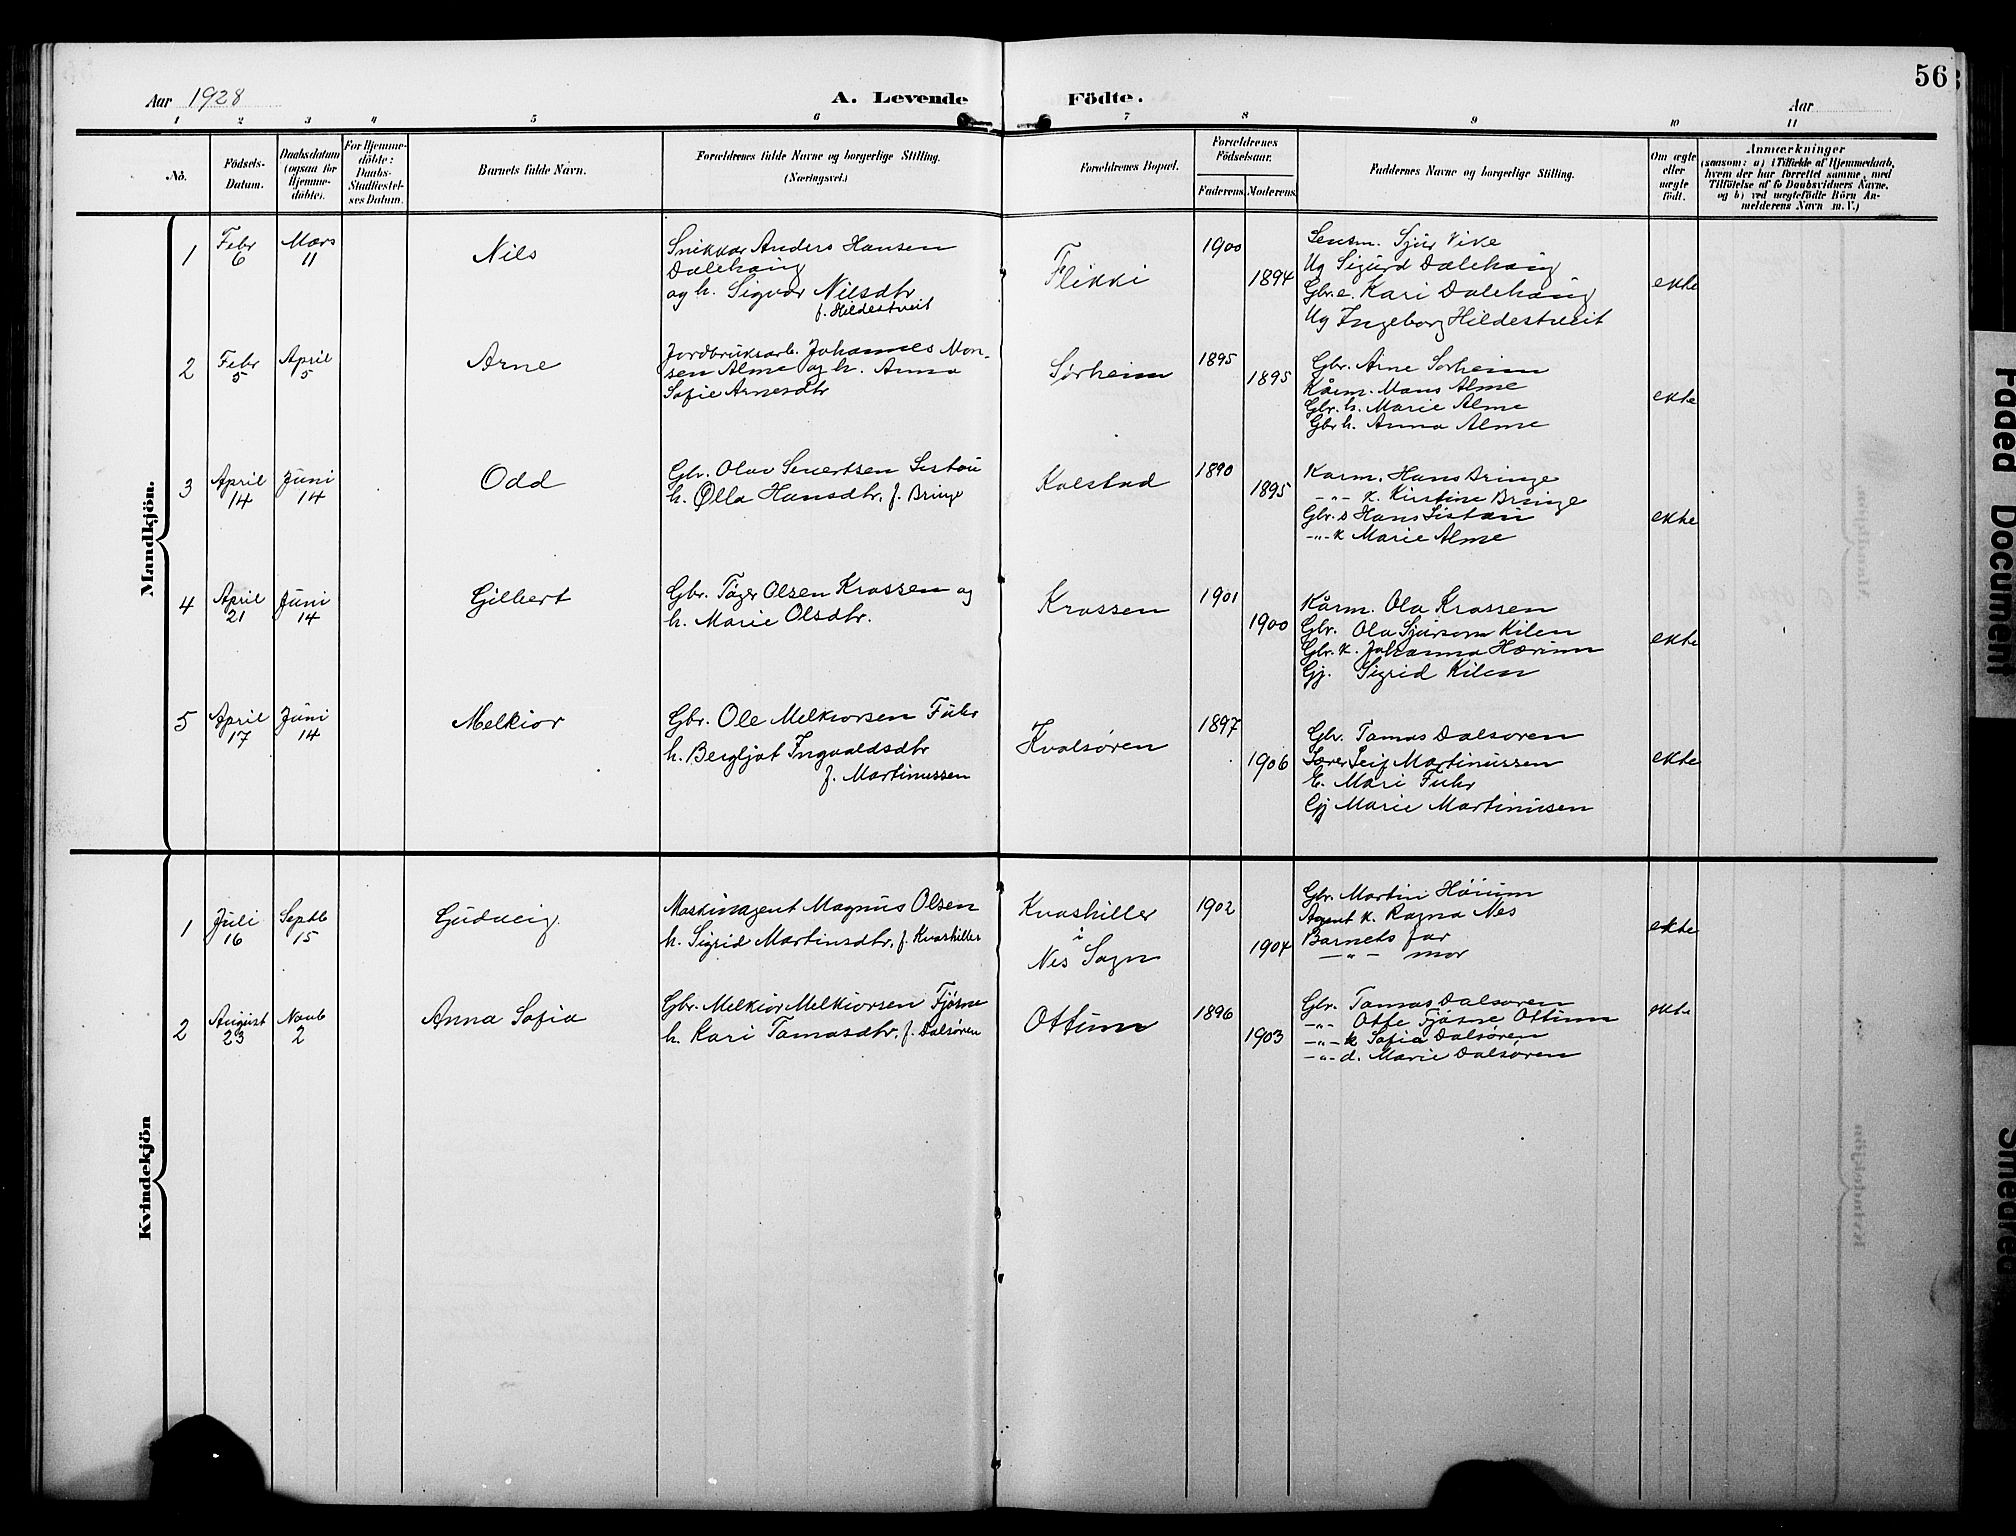 56
Aar 1928
A. Levende Födte.
Aar
1 2 3 4 5 6 7 8 9 10 11
No.
Födsels-
Datum.
Daabsdatum
(ogsaa for
Hjemme-
döbte).
For Hjemme-
döbte:
Daabs-
Stadfæstel-
ses Datum.
Barnets fulde Navn.
Forældrenes fulde Navne og borgerlige Stilling.
(Næringsvei.)
Forældrenes Bopæl.
Forældrenes
Födselsaar.
Faderens. Moderens.
Faddernes Navne og borgerlige Stilling.
Om ægte
eller
uægte
födt.
Anmærkninger
(saasom: a) i Tilfælde af Hjemmedaab,
hvem der har forrettet samme, med
Tilföielse af to Daabsvidners Navne,
og b) ved uægtefödte Börn An-
melderens Navn m. V.)
Mandkjön.
1
Febr
6
Mars
11
Nils
Snikkar Anders Hansen
Dalehaug
og h. Sigvor Nilsdtr
f. Hildestveit
Flikki
1900
1894
Lensm. Sjur Vike
Ug Sigurd Dalehaug
Gbr. e. Kari Dalehaug
Ug Ingeborg Hildestveit
ekte
2
Febr
5
April
5
Arne
Jordbruksarb. Johannes Mon-
sen Alme og h. Anna
Sofie Arnesdtr
Sørheim
1895
1895
Gbr. Arne Sørheim
Kårm. Mons Alme
Gbr. h. Marie Alme
Gbr h. Anna Alme
ekte
3
April
14
Juni
14
Odd
Gbr. Olav Severtsen Listau
h. Olla Hansdtr, f. Bringe
Kalstad
1890
1895
Karm. Hans Bringe
-"- k. Kirstine Bringe
Gbr. s Hans Listau
-"- k Marie Alme
ekte
4
April
21
Juni
14
Gjilbert
Gbr. Tøger Olsen Krossen og
h. Marie Olsdtr.
Krossen
1901
1900
Kårm. Ola Krossen
Gbr. Ola Sjurson Kilen
Gbr. k. Johanna Hærum
Gj. Sigrid Kilen
ekte
5
April
17
Juni
14
Melkior
Gbr. Ole Melkiorsen Fuhr
h. Bergljot Ingvaldsdtr
f. Martinussen
Kvalsøren
1897
1906
Gbr. Tomas Dalsøren
Lærer Leif Martinussen
E. Mari Fuhr
Gj Marie Martinusen
ekte
Kvindekjön
1
Juli
16
Septb
15
Gudveig
Maskinagent Magnus Olsen
h. Sigrid Martinsdtr, f. Kvashiller
Kvashiller
i
Nes Sogn
1902
1904
Gbr. Martin Høium
Agent k. Ragna Nes
Barnets far
-"- mor
ekte
2
August
23
Novb
2
Anna Sofia
Gbr. Melkior Melkiorsen Fjøsne
h. Kari Tomasdtr, f. Dalsøren
Ottum
1896
1903
Gbr. Tomas Dalsøren
-"- Otte Fjøsne Ottum
-"- k Sofia Dalsøren
-"- d. Marie Dalsøren
ekte
Faded Document
Smeared